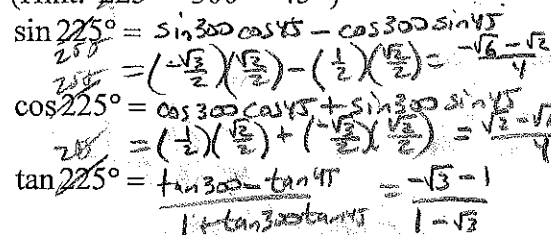 sin 225° = sin300 cos45 - cos300 sin45
255
= (-√3/2)(√2/2) - (1/2)(√2/2) = -√6 - √2/4
255
cos 225° = cos300 cos45 + sin300 sin45
= (1/2)(√2/2) + (-√3/2)(√2/2) = √2 - √6/4
tan 225° = tan300 - tan45/1 + tan300tan45 = -√3 - 1/1 - √3